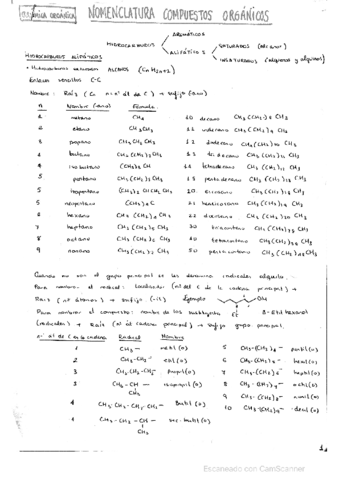 QUÍMICA ORGÁNICA NOMENCLATURA COMPUESTOS ORGÁNICOS
AROMÁTICOS
HIDROCARBUROS
ALIFÁTICOS
SATURADOS (alcanos)
INSATURADOS (alquenos y alquinos)
HIDROCARBUROS ALIFÁTICOS
ALCANOS (CnH2n+2)
Enlace sencillo C-C
Nombre: Raíz (Cn n = nº át de C) + sufijo (ano)
n Nombre (ano) Fórmula
1 metano CH4 10 decano CH3(CH2)8CH3
2 etano CH3CH3 11 undecano CH3(CH2)9CH3
3 propano CH3CH2CH3 12 dodecano CH3(CH2)10CH3
4 butano CH3(CH2)2CH3 13 tridecano CH3(CH2)11CH3
4 isobutano (CH3)3CH 14 tetradecano CH3(CH2)12CH3
5 pentano CH3(CH2)3CH3 15 pentadecano CH3(CH2)13CH3
5 isopentano (CH3)2CHCH2CH3 20 eicosano CH3(CH2)18CH3
5 neopentano (CH3)4C 21 heneicosano CH3(CH2)19CH3
6 hexano CH3(CH2)4CH3 22 docosano CH3(CH2)20CH3
7 heptano CH3(CH2)5CH3 30 triacontano CH3(CH2)28CH3
8 octano CH3(CH2)6CH3 40 tetracontano CH3(CH2)38CH3
9 nonano CH3(CH2)7CH3 50 pentacontano CH3(CH2)48CH3
Cuando no son el grupo principal se les denomina radicales alquilo.
Para nombrar el radical: localizador (nº del C de la cadena principal) +
Raíz (nº átomos) + sufijo (-il) Ejemplo OH
Para nombrar el compuesto: nombre de los
Et 3-Etil hexanol
(radicales) + Raíz (nº át cadena principal) + sufijo grupo principal.
nº át de C en la cadena Radical Nombre
1 CH3- metil(o) 5 CH3-(CH2)4- pentil(o)
2 CH3-CH2- etil(o) 6 CH3-(CH2)5- hexil(o)
3 CH3-CH2-CH2- propil(o) 7 CH3-(CH2)6- heptil(o)
3 CH3-CH- isopropil(o) 8 CH3-(CH2)7- octil(o)
CH3 9 CH3-(CH2)8- nonil(o)
4 CH3-CH2-CH2-CH2- butil(o) 10 CH3-(CH2)9- decil(o)
4 CH3-CH2-CH- sec-butil(o)
CH3
Escaneado con CamScanner